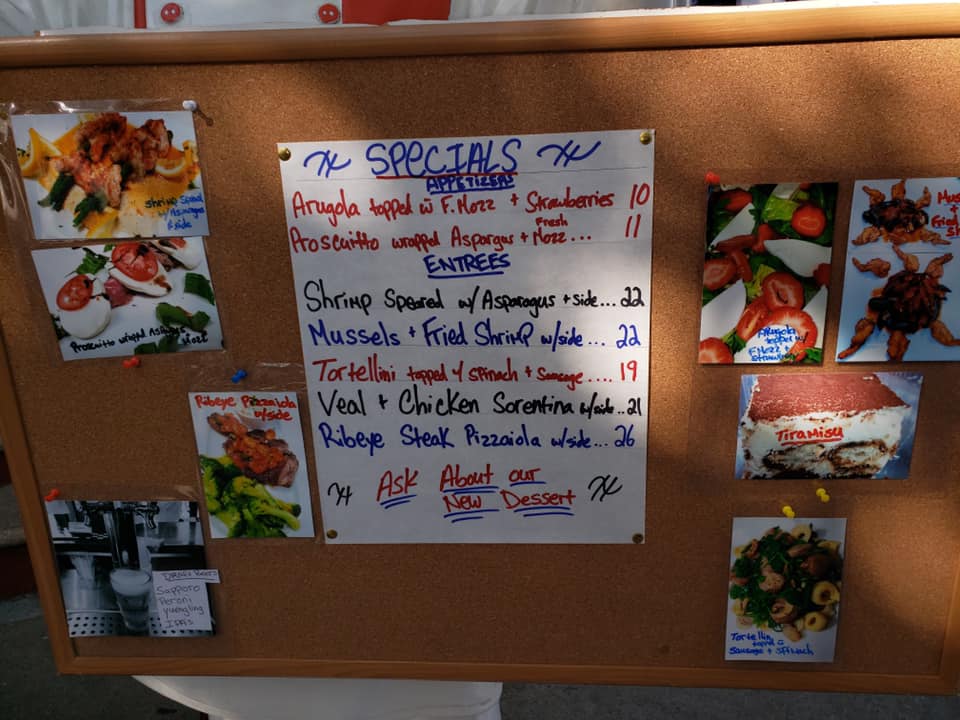 SPECIALS
APPETIZERS
Arugola topped w F. Mozz + Strawberries 10
Proscuitto wrapped Aspargus + Fresh Mozz... 11
ENTREES
Shrimp Speared w/ Asparagus + side... 22
Mussels + Fried Shrimp w/side... 22
Tortellini topped w/ spinach + Sausage.... 19
Veal + Chicken Sorentina w/side.. 21
Ribeye Steak Pizzaiola w/side... 26
Ask About our
New Dessert
Shrimp Spear
w/ Asparagus
& side
Proscuitto wrapped Aspargus
Mozz
Ribeye Pizzaiola
w/side
Sapporo
Peroni
Yuengling
IPA's
Arugola
topped w/
F. Mozz +
Strawberry
Mus
+
Fried
Sh
TIRAMISU
Tortellin
topped c
Sausage + Spinach